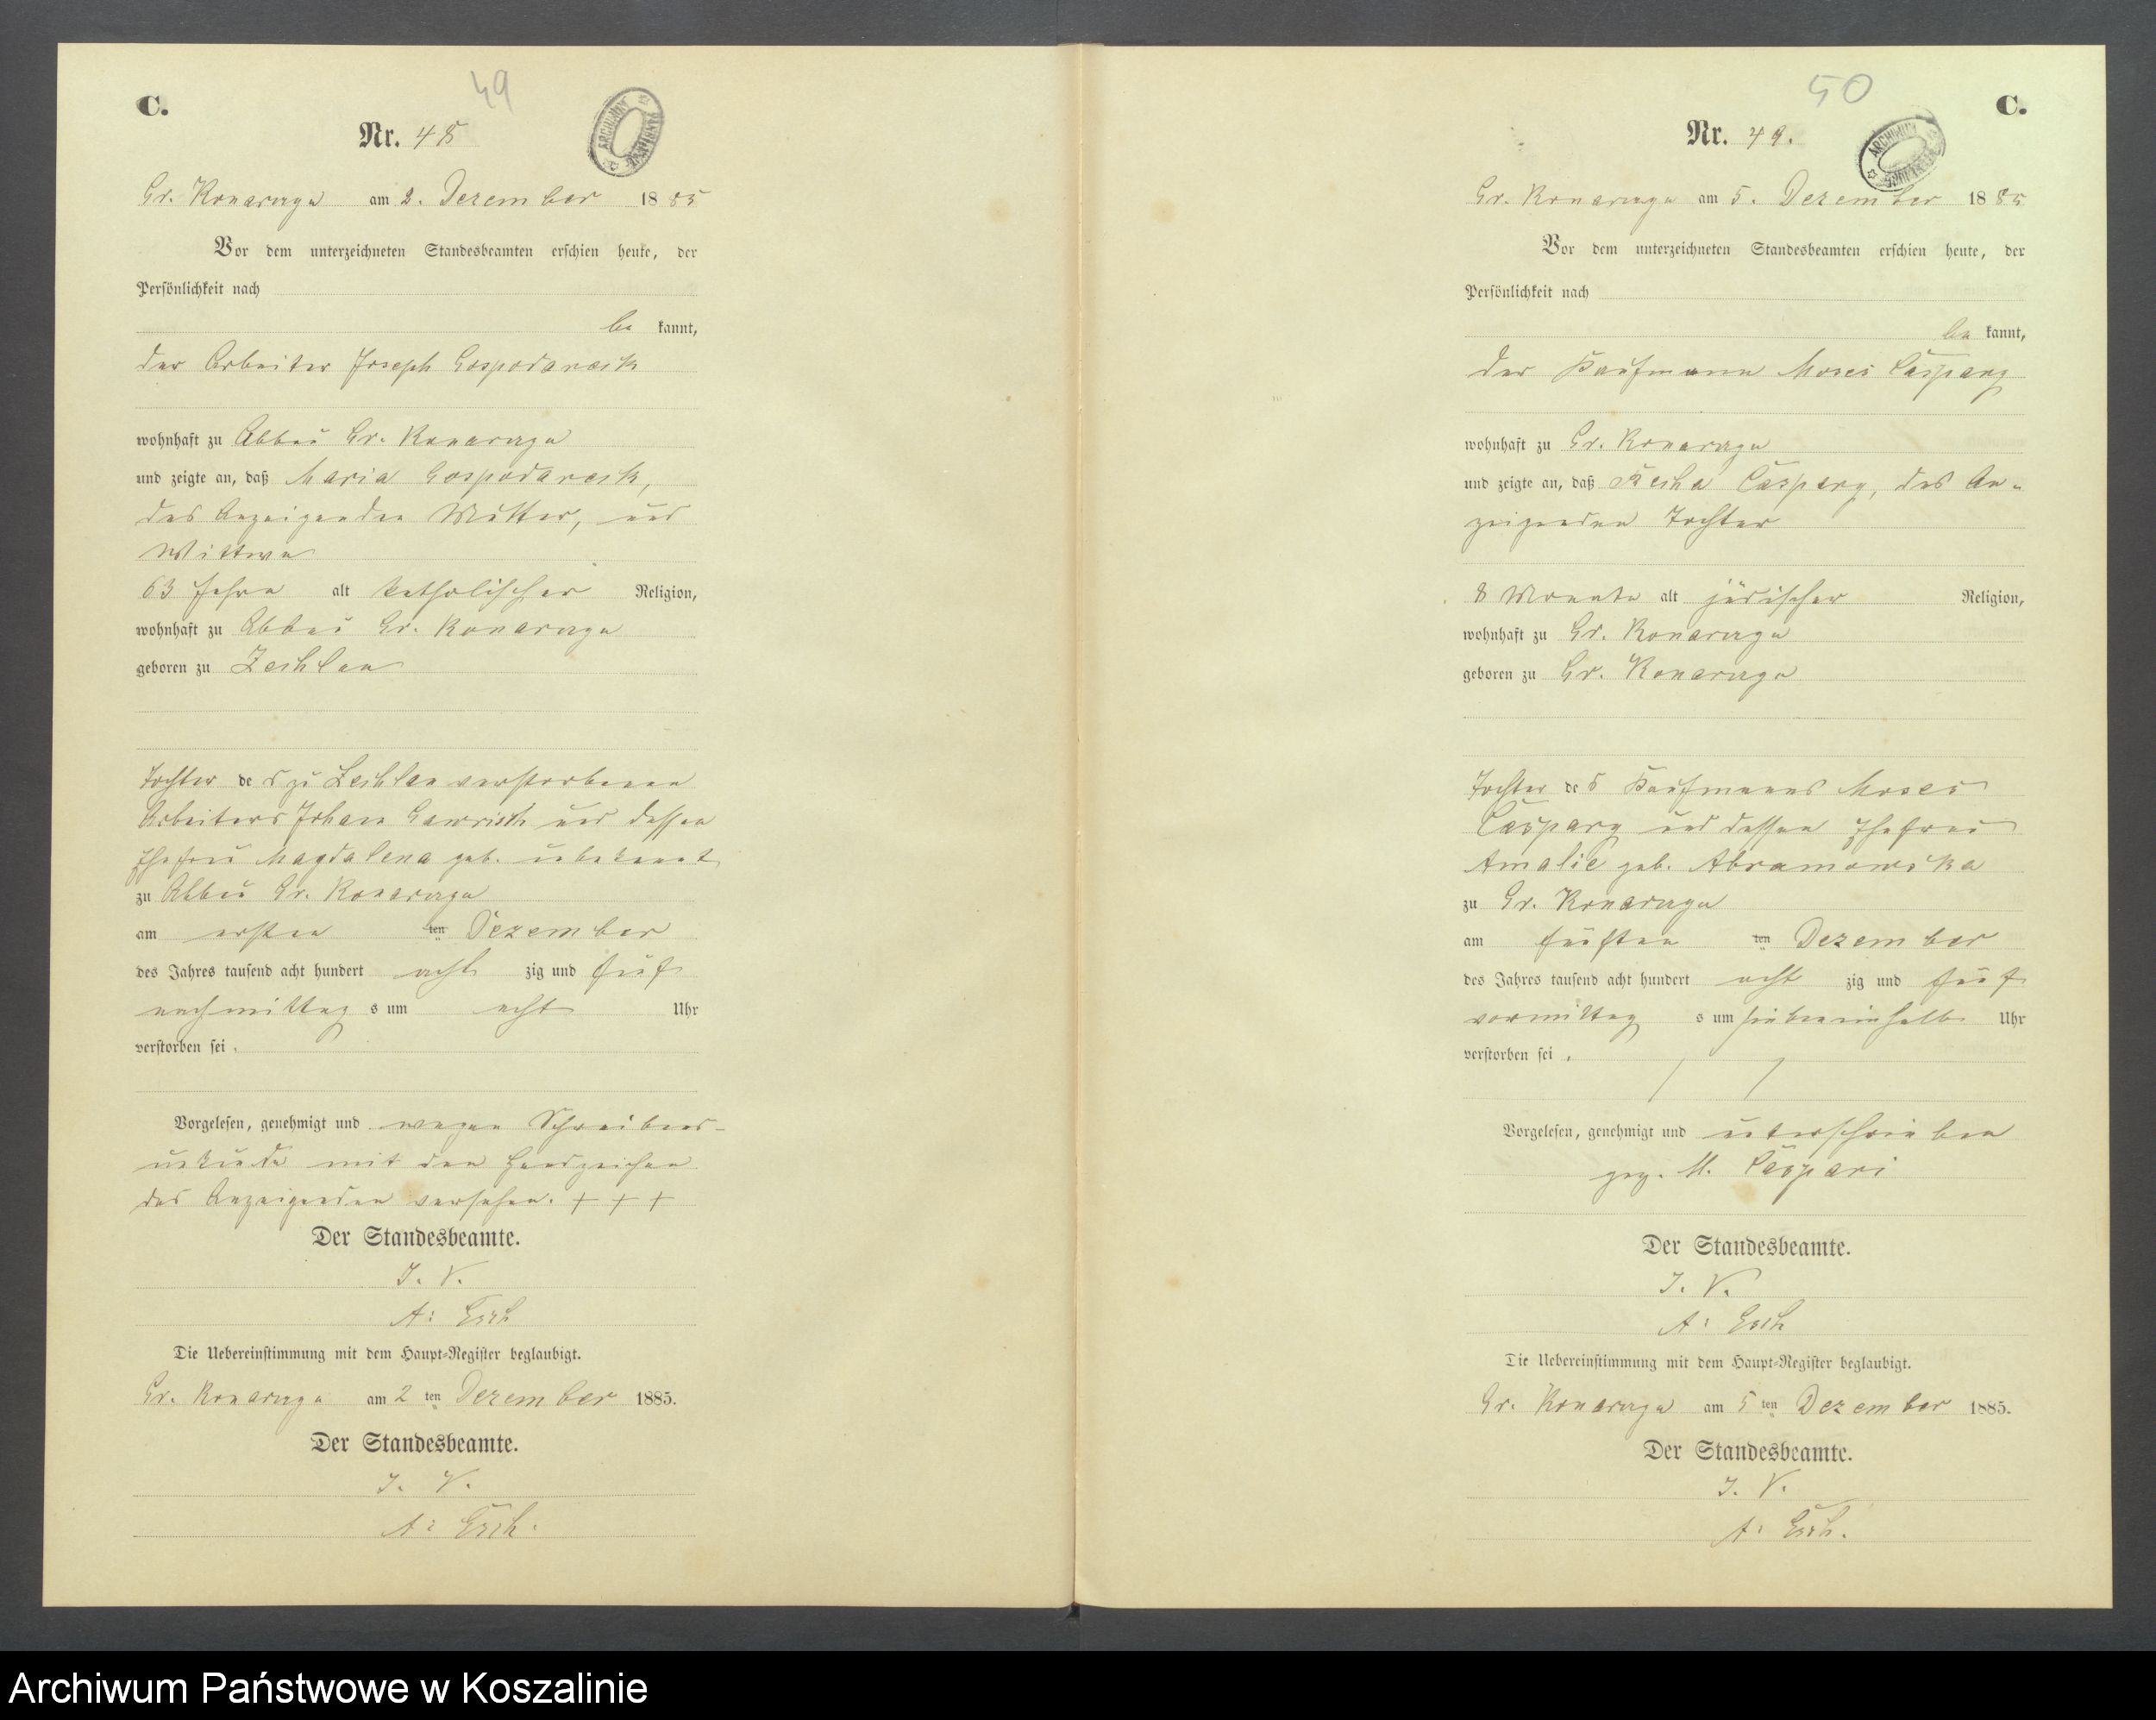 49
C.
Nr. 48
Gr. Konarczyn am 2. Dezember 1885
Vor dem unterzeichneten Standesbeamten erschien heute, der
Persönlichkeit nach
be kannt,
der Arbeiter Joseph Gospodarczik
wohnhaft zu Abbau Gr. Konarczyn
und zeigte an, daß Maria Gospodarczik,
des Anzeigenden Mutter, und
Wittwe
63 Jahre alt katholischer Religion,
wohnhaft zu Abbau Gr. Konarczyn
geboren zu
Tochter de s zu verstorbenen
Arbeiters Johann und dessen
Ehefrau Magdalena geb. unbekannt
zu Abbau Gr. Konarczyn
am ersten ten Dezember
des Jahres tausend acht hundert acht zig und fünf
nachmittag s um acht Uhr
verstorben sei.
Vorgelesen, genehmigt und wegen Schreibens-
unkunde mit den Handzeichen
des Anzeigenden versehen. + + +
Der Standesbeamte.
J. V.
A:
Die Uebereinstimmung mit dem Haupt-Register beglaubigt.
Gr. Konarczyn am 2 ten Dezember 1885.
Der Standesbeamte.
J. V.
A:
50
C.
Nr. 49.
Gr. Konarczyn am 5. Dezember 1885
Vor dem unterzeichneten Standesbeamten erschien heute, der
Persönlichkeit nach
be kannt,
der Kaufmann Moses Caspary
wohnhaft zu Gr. Konarczyn
und zeigte an, daß Caspary, des An-
zeigenden Tochter
8 Monate alt jüdischer Religion,
wohnhaft zu Gr. Konarczyn
geboren zu Gr. Konarczyn
Tochter de s Kaufmanns Moses
Caspary und dessen Ehefrau
Amalie geb. Abramowska
zu Gr. Konarczyn
am fünften ten Dezember
des Jahres tausend acht hundert acht zig und fünf
vormittag s um siebeneinhalb Uhr
verstorben sei.
Vorgelesen, genehmigt und unterschrieben
gez. M. Caspari
Der Standesbeamte.
J. V.
A:
Die Uebereinstimmung mit dem Haupt-Register beglaubigt.
Gr. Konarczyn am 5 ten Dezember 1885.
Der Standesbeamte.
J. V.
A:
Archiwum Państwowe w Koszalinie